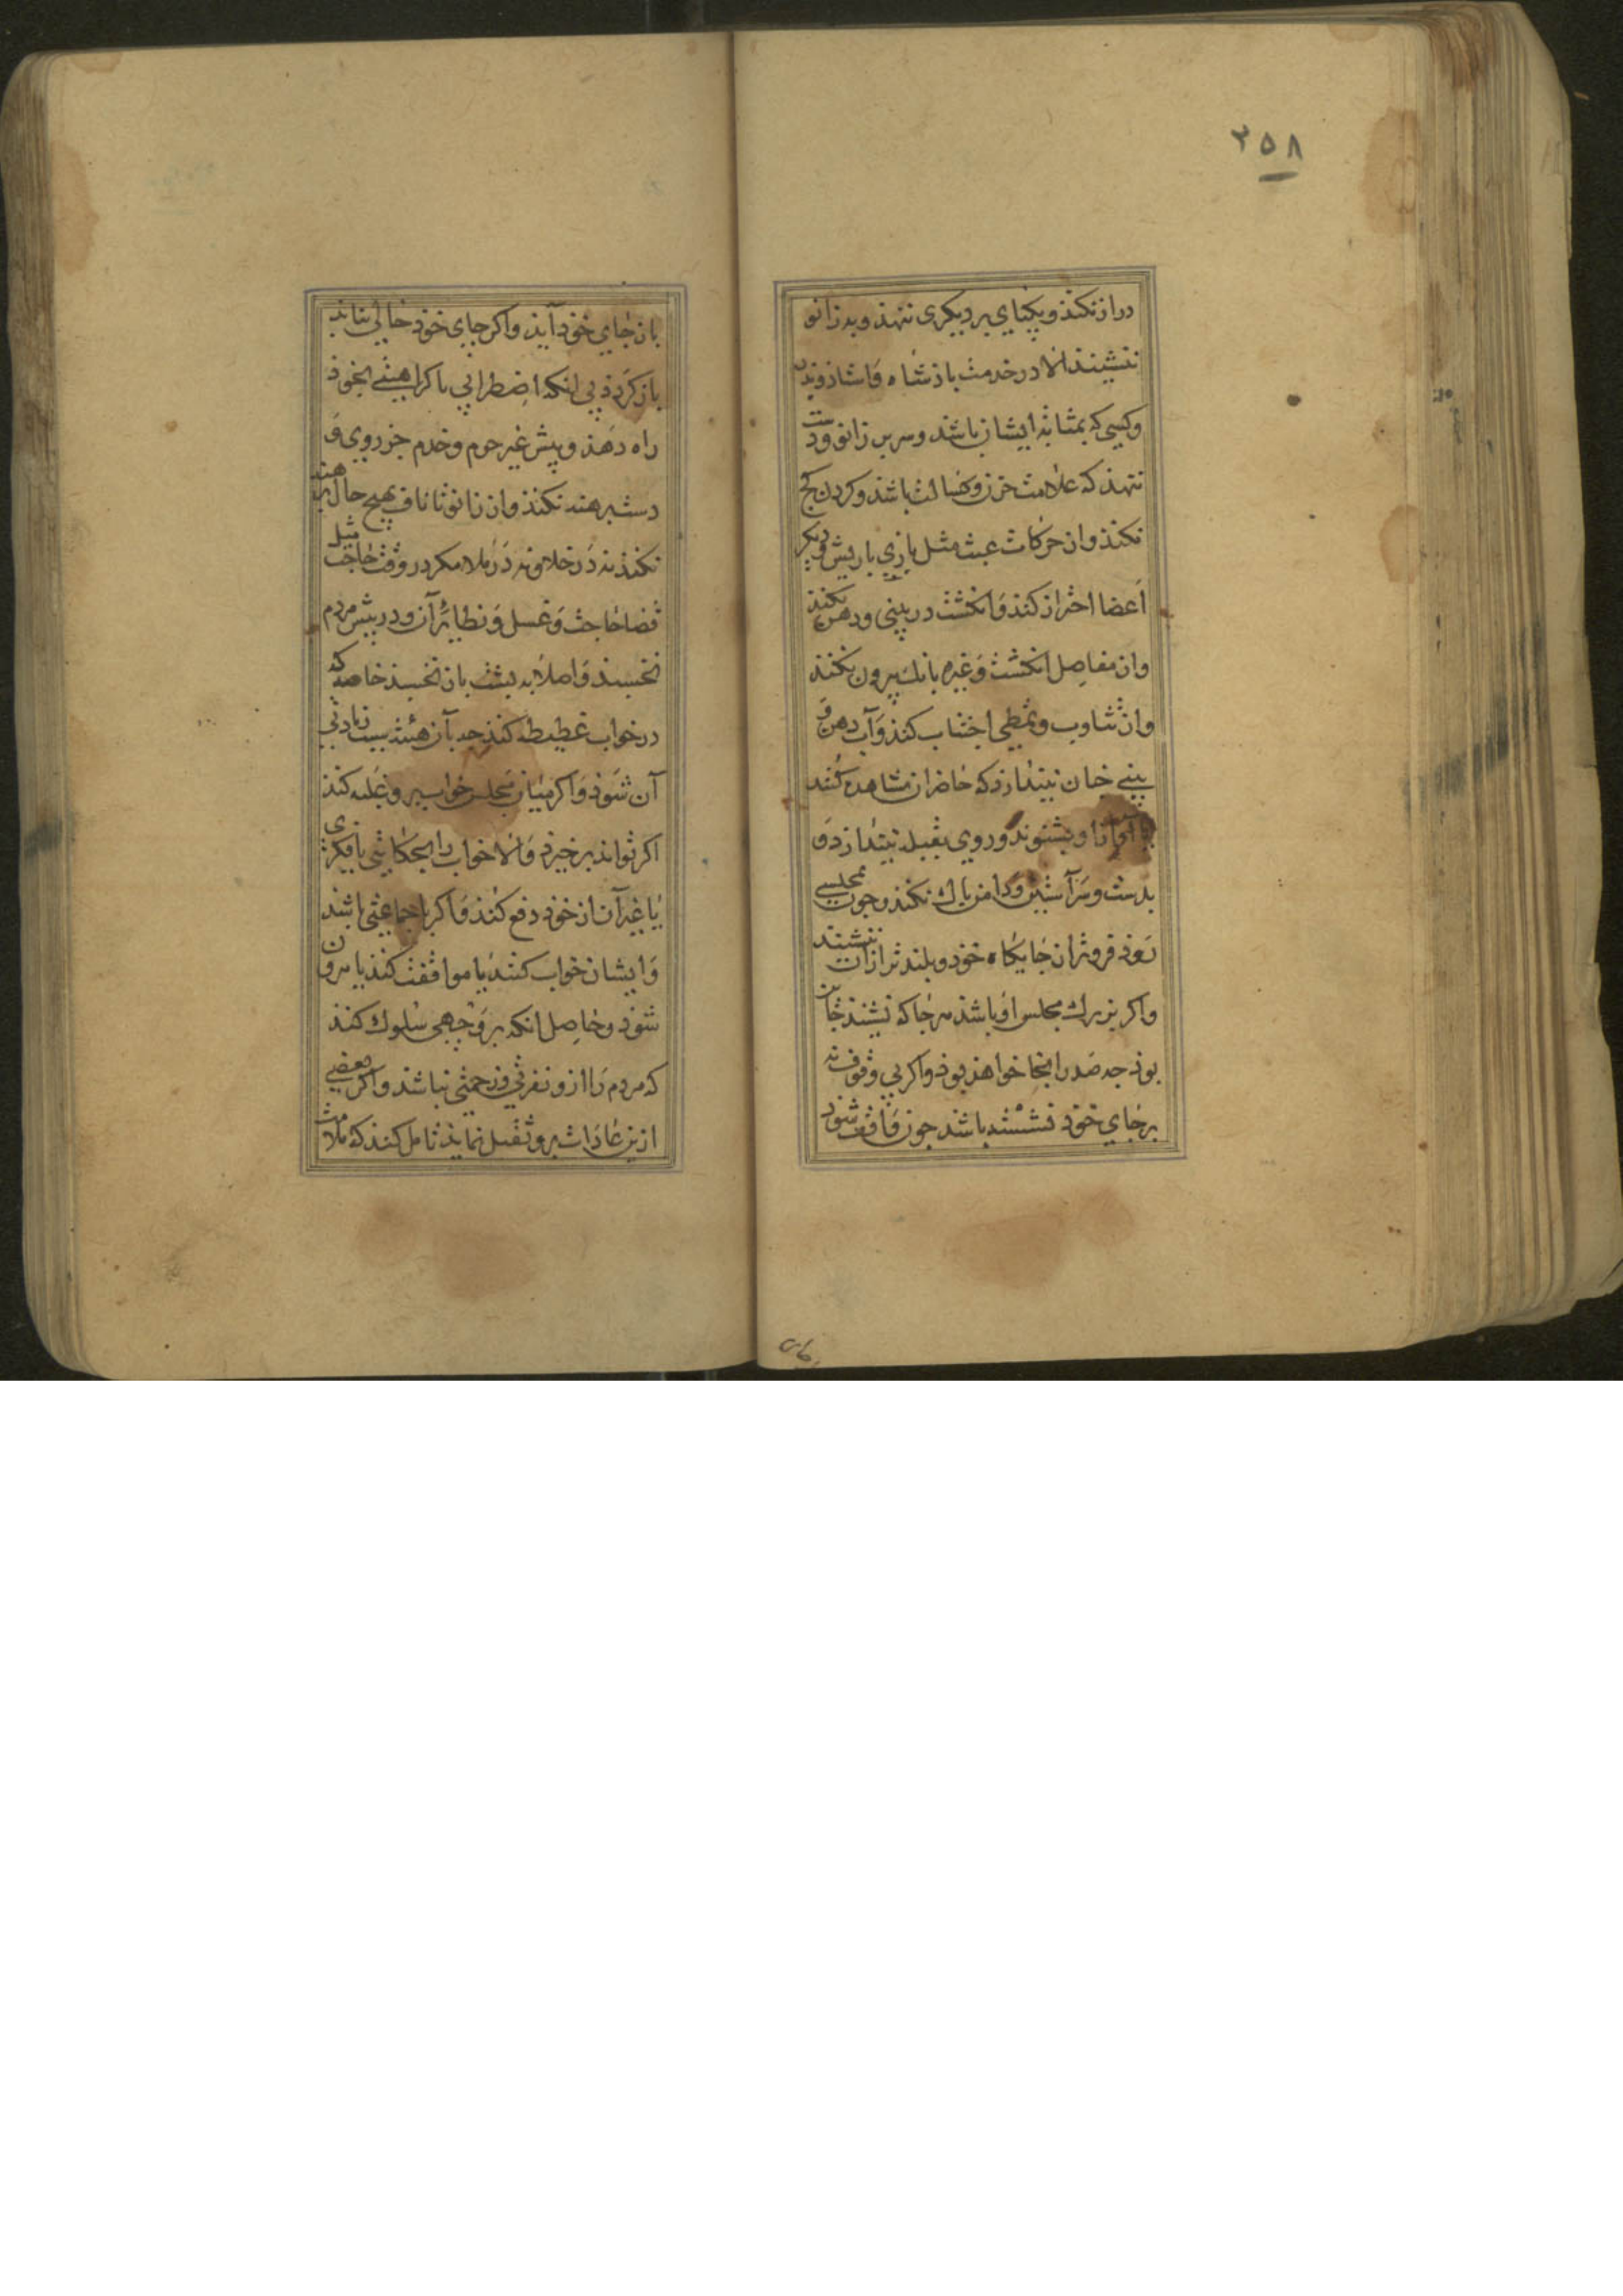 ۲۵۸
دراز نکند و یکپای بر دیکری ننهد و بدو زانو
ننشیند الا در خدمت باذشاه و استاذ و پدر
وکسی که بمثابه ایشان باشد و سر بر زانو و دست
ننهذ که علامت حزن و کسالت باشد و کردن کج
نکند و از حرکات عبث مثل بازی با ریش و دیکر
اعضا احتراز کند و انکشت در بینی و دهن نکند
و از مفاصل انکشت و غیره بانک بیرون نکند
و از تثاوب و تمطی اجتناب کند و آب دهن و
بینی چنان نیندازد که حاضران مشاهده کنند
یا آواز او بشنوند و روی بقبله نیندازد و
بدست و سر آستین و دامن پاک نکند و چون بمجلسی
رود فروتر از جایکاه خود و بلندتر از آن ننشیند
و اکر بزرک مجلس او باشد هر جا که نشیند جائز
بوذ جه صدر انجا خواهذ بوذ و اکر بی وقوف نه
بر جای خود نشسته باشد جون واقف شود
باز جای خوذ آید و اکر جای خوذ خالی نیابد
باز کردد بی انکه اضطرابی یا کراهیتی بخوذ
راه دهذ و پیش غیر حرم و خدم جز روی و
دست برهنه نکند و از زانو تا ناف بهیچ حال برهنه
نکند نه در خلا و نه در ملا مکر در وقت حاجت مثل
قضا حاجت و غسل و نظایر آن و در پیش مردم
نخسبد و اصلا به پشت باز نخسبد خاصه که
در خواب غطیطه کند جه بآن هیئت سبب زیادتی
آن شوذ و اکر میان مجلس خواب برو غلبه کند
اکر تواند برخیزد و الا خواب را بحکایتی یا فکری
یا غیر آن از خوذ دفع کند و اکر با جماعتی باشد
و ایشان خواب کنند یا موافقت کند یا بیرون
شوذ و حاصل انکه بر وجهی سلوک کند
که مردم را ازو نفرتی و زحمتی نباشد و اکر بعضی
ازین عادات برو ثقیل نماید تامل کند که ملامت